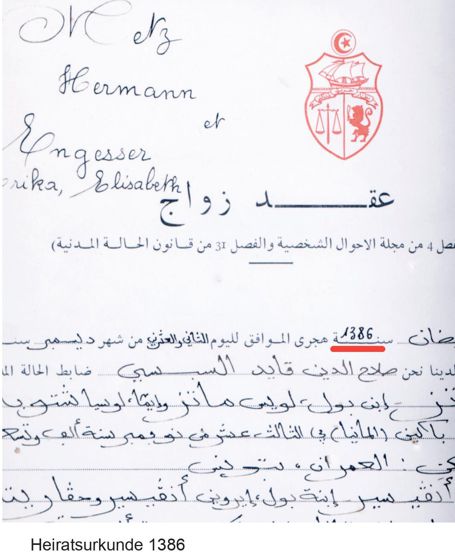 Metz
Hermann
et
Engesser
rika, Elisabeth
عقـــــد زواج
صل 4 من مجلة الاحوال الشخصية والفصل 31 من قانون الحالة المدنية)
ضان سنـــة 1386 هجرى الموافق لليوم الثاني والعشرين من شهر ديسمبر سنـ
لدينا نحن صلاح الدين قايد السبسي ضابط الحالة الم
إبن بول، لويس مانز وايما، لويسا
(المانيا) في الثالث عشر من نوفمبر سنة ألف وتسع
كن: العمران، بتونس
أنقيسر إبنة بول، إيروين أنقيسر
Heiratsurkunde 1386